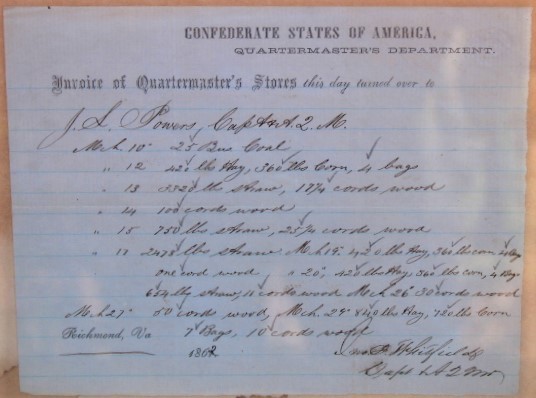 CONFEDERATE STATES OF AMERICA,
QUARTERMASTER'S DEPARTMENT.
Invoice of Quartermaster's Stores this day turned over to
J. L. Powers, Capt & A. Q. M.
Mch. 10" 25 Bus Coal
" 12 420 lbs Hay, 360 lbs Corn, 4 bags
" 13 3320 lbs Straw, 17¼ cords wood
" 14 100 cords wood
" 15 750 lbs Straw, 25¼ cords wood
" 17 2475 lbs Straw Mch 19" 420 lbs Hay, 360 lbs corn, 4 Bags
one cord wood " 20" 420 lbs Hay, 360 lbs corn, 4 Bags
654 lbs Straw, cords wood Mch 26" 30 cords wood
Mch 27" 50 cords wood, Mch. 29" 840 lbs Hay, 720 lbs Corn
Richmond, Va 7 Bags, 10 cords wood
1862 Whitfield
Capt & A Q M